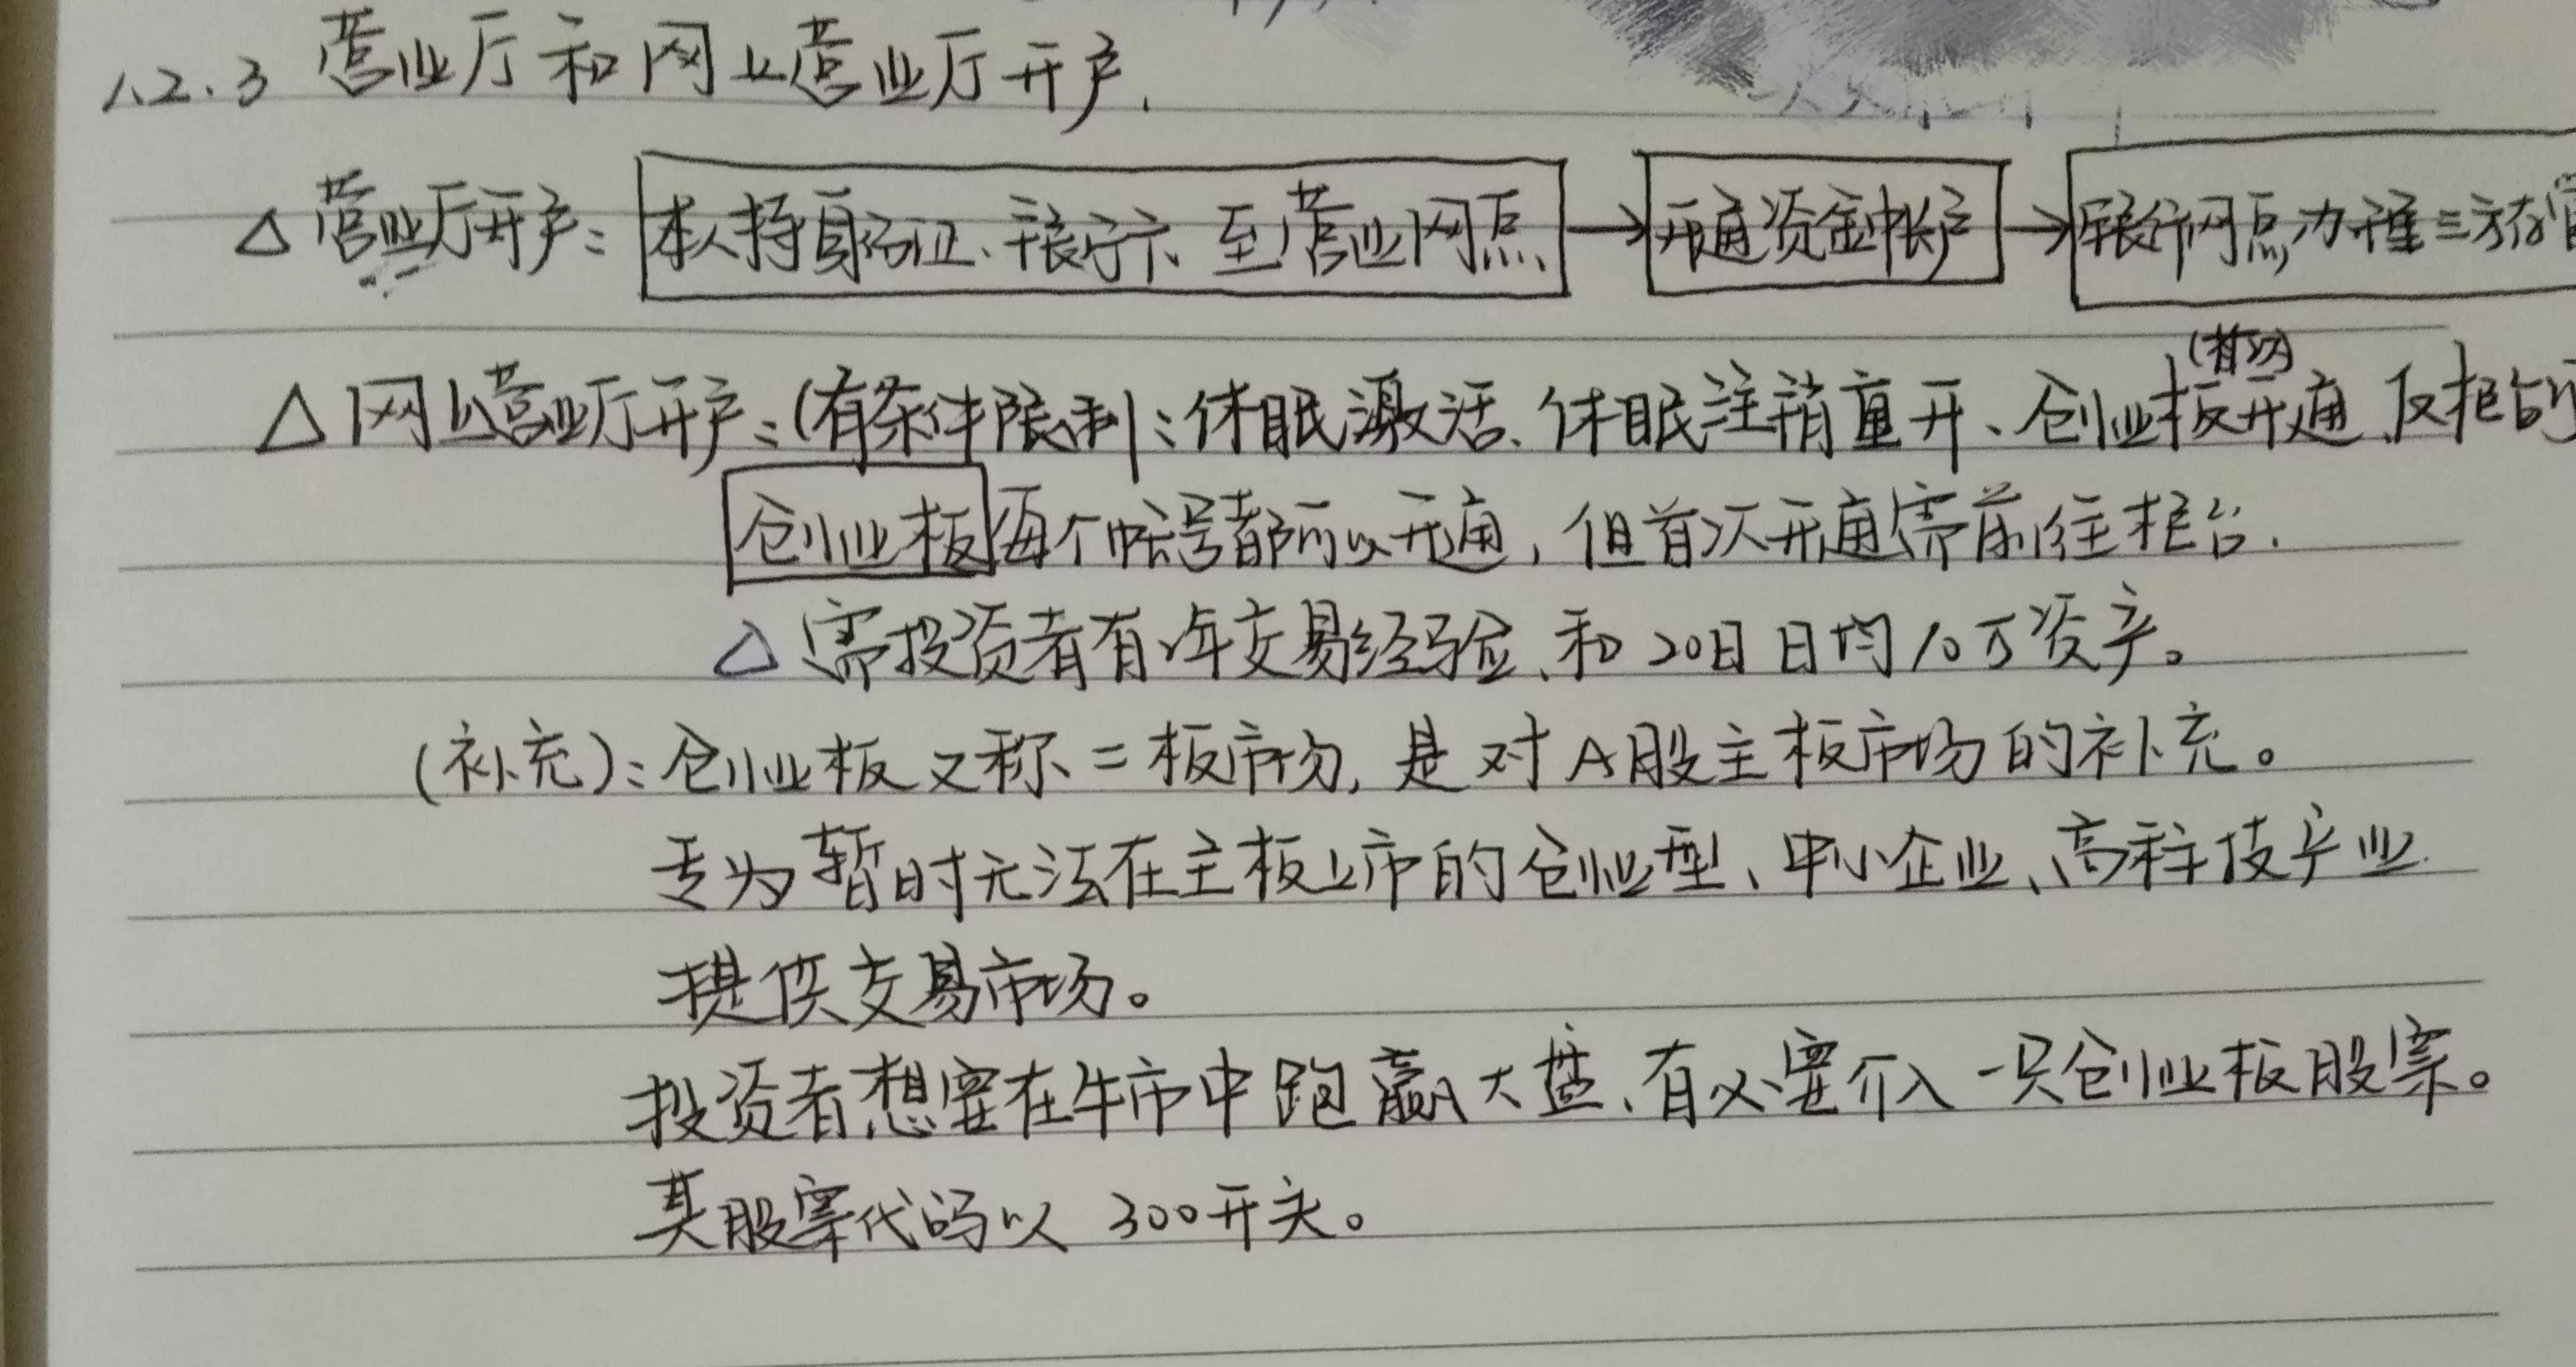 1.2.3 营业厅和网上营业厅开户.
△ 营业厅开户: 本人持身份证、银行卡、至营业网点 → 开通资金帐户 → 银行网点办理三方存管
(首次)
△ 网上营业厅开户: (有条件限制: 休眠激活、休眠注销重开、创业板开通 仅柜台
创业板 每个帐号都可以开通, 但首次开通需前往柜台.
△ 需投资者有2年交易经验、和20日日均10万资产。
(补充): 创业板又称二板市场, 是对A股主板市场的补充。
专为暂时无法在主板上市的创业型、中小企业、高科技产业
提供交易市场。
投资者想要在牛市中跑赢大盘、有必要介入一只创业板股票。
其股票代码以 300开头。